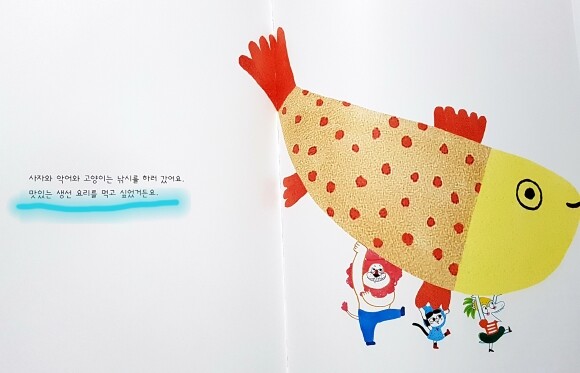 사자와 악어와 고양이는 낚시를 하러 갔어요.
맛있는 생선 요리를 먹고 싶었거든요.